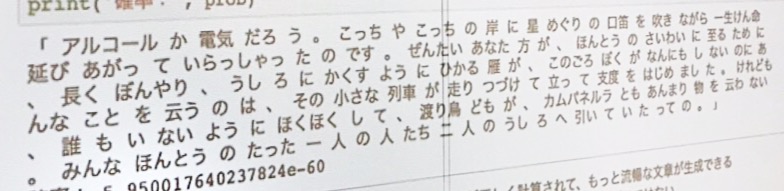 print("確率：", prob)
「 アルコール か 電気 だろ う 。 こっち や こっち の 岸 に 星 めぐり の 口笛 を 吹き ながら 一生けん命
延び あがっ て いらっしゃっ た の です 。 ぜんたい あなた 方 が 、 ほんとう の さいわい に 至る ため に
、 長く ぼんやり 、 うし ろ に かくす ように ひかる 雁 が 、 このごろ ぼく が なんにも し ない のに あ
んな こと を 云う の は 、 その 小さな 列車 が 走り つづけ て 立っ て 支度 を はじめ まし た 。 けれども
、 誰 も い ない ように ほくほく し て 、 渡り鳥 ども が 、 カムパネルラ とも あんまり 物 を 云わ ない
。 みんな ほんとう の たっ た 一 人 の 人 たち 二 人 の うしろ へ 引い て い たっ て の 。」
950017640237824e-60
計算されて、もっと流暢な文章が生成できる